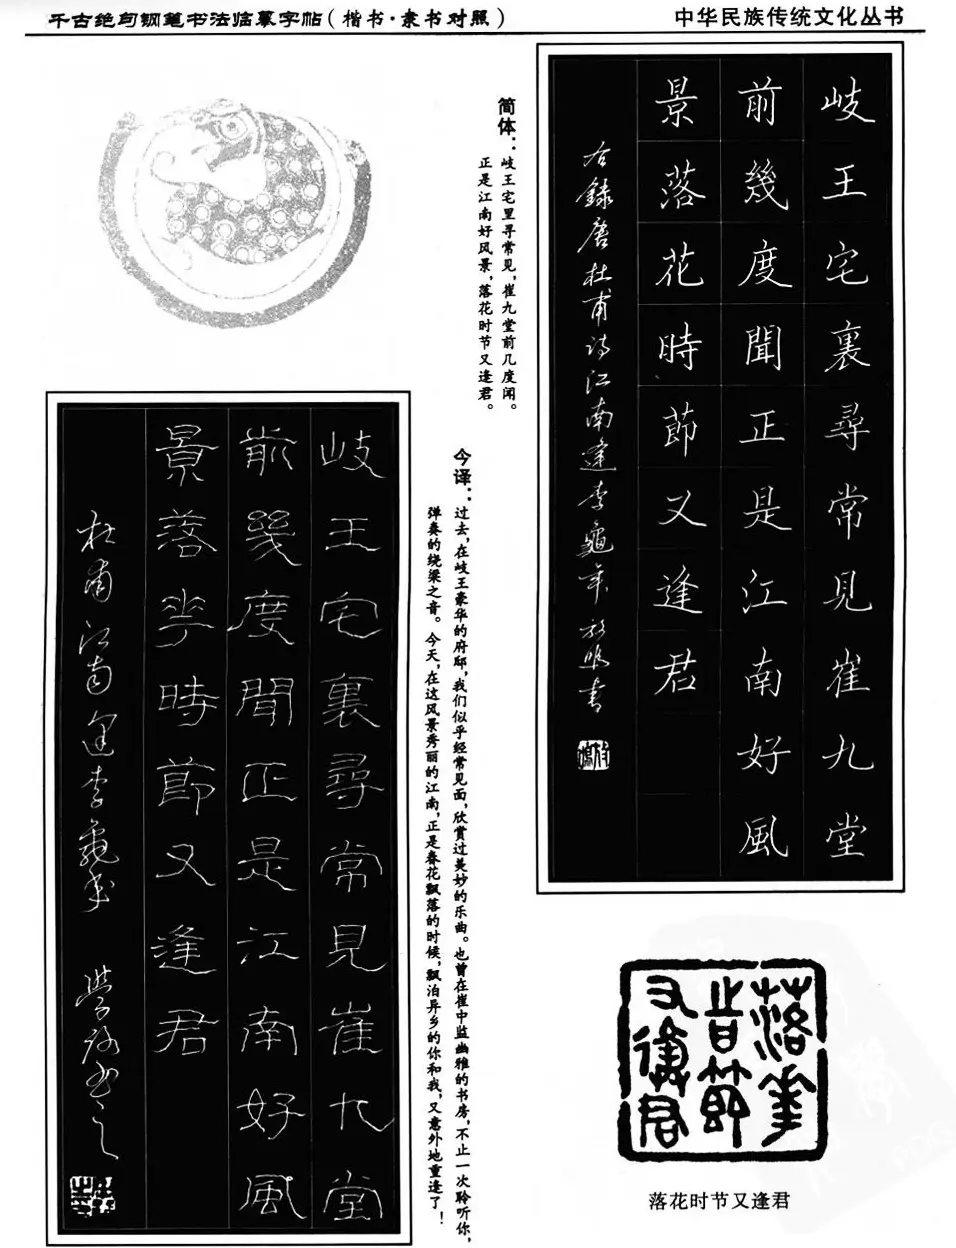 千古绝句钢笔书法临摹字帖（楷书·隶书对照）
中华民族传统文化丛书
岐王宅裏尋常見崔九堂
前幾度聞正是江南好風
景落花時節又逢君
右錄唐杜甫诗江南逢李龜年
书
简体：岐王宅里寻常见，崔九堂前几度闻。
正是江南好风景，落花时节又逢君。
今译：过去，在岐王豪华的府邸，我们似乎经常见面，欣赏过美妙的乐曲。也曾在崔中监幽雅的书房，不止一次聆听你，
弹奏的绕梁之音。今天，在这风景秀丽的江南，正是春花飘落的时候，飘泊异乡的你和我，又意外地重逢了！
岐王宅裏尋常見崔九堂
前幾度聞正是江南好風
景落花時節又逢君
杜甫江南逢李龜年
落花
时节
又逢君
落花时节又逢君